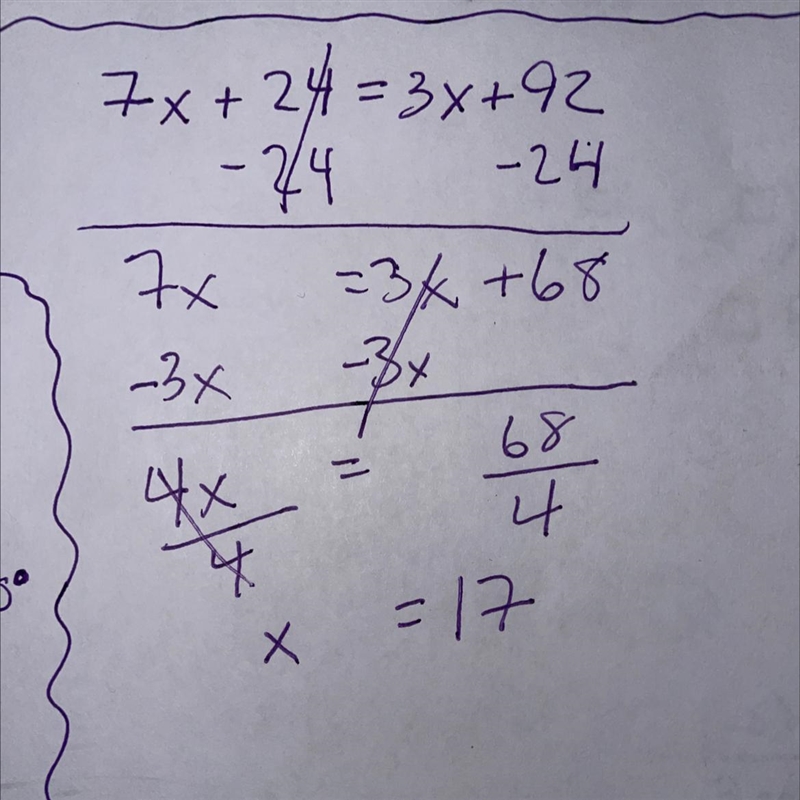 7x + 24 = 3x + 92
- 24 - 24
7x = 3x + 68
- 3x - 3x
4x = 68
4 4
x = 17